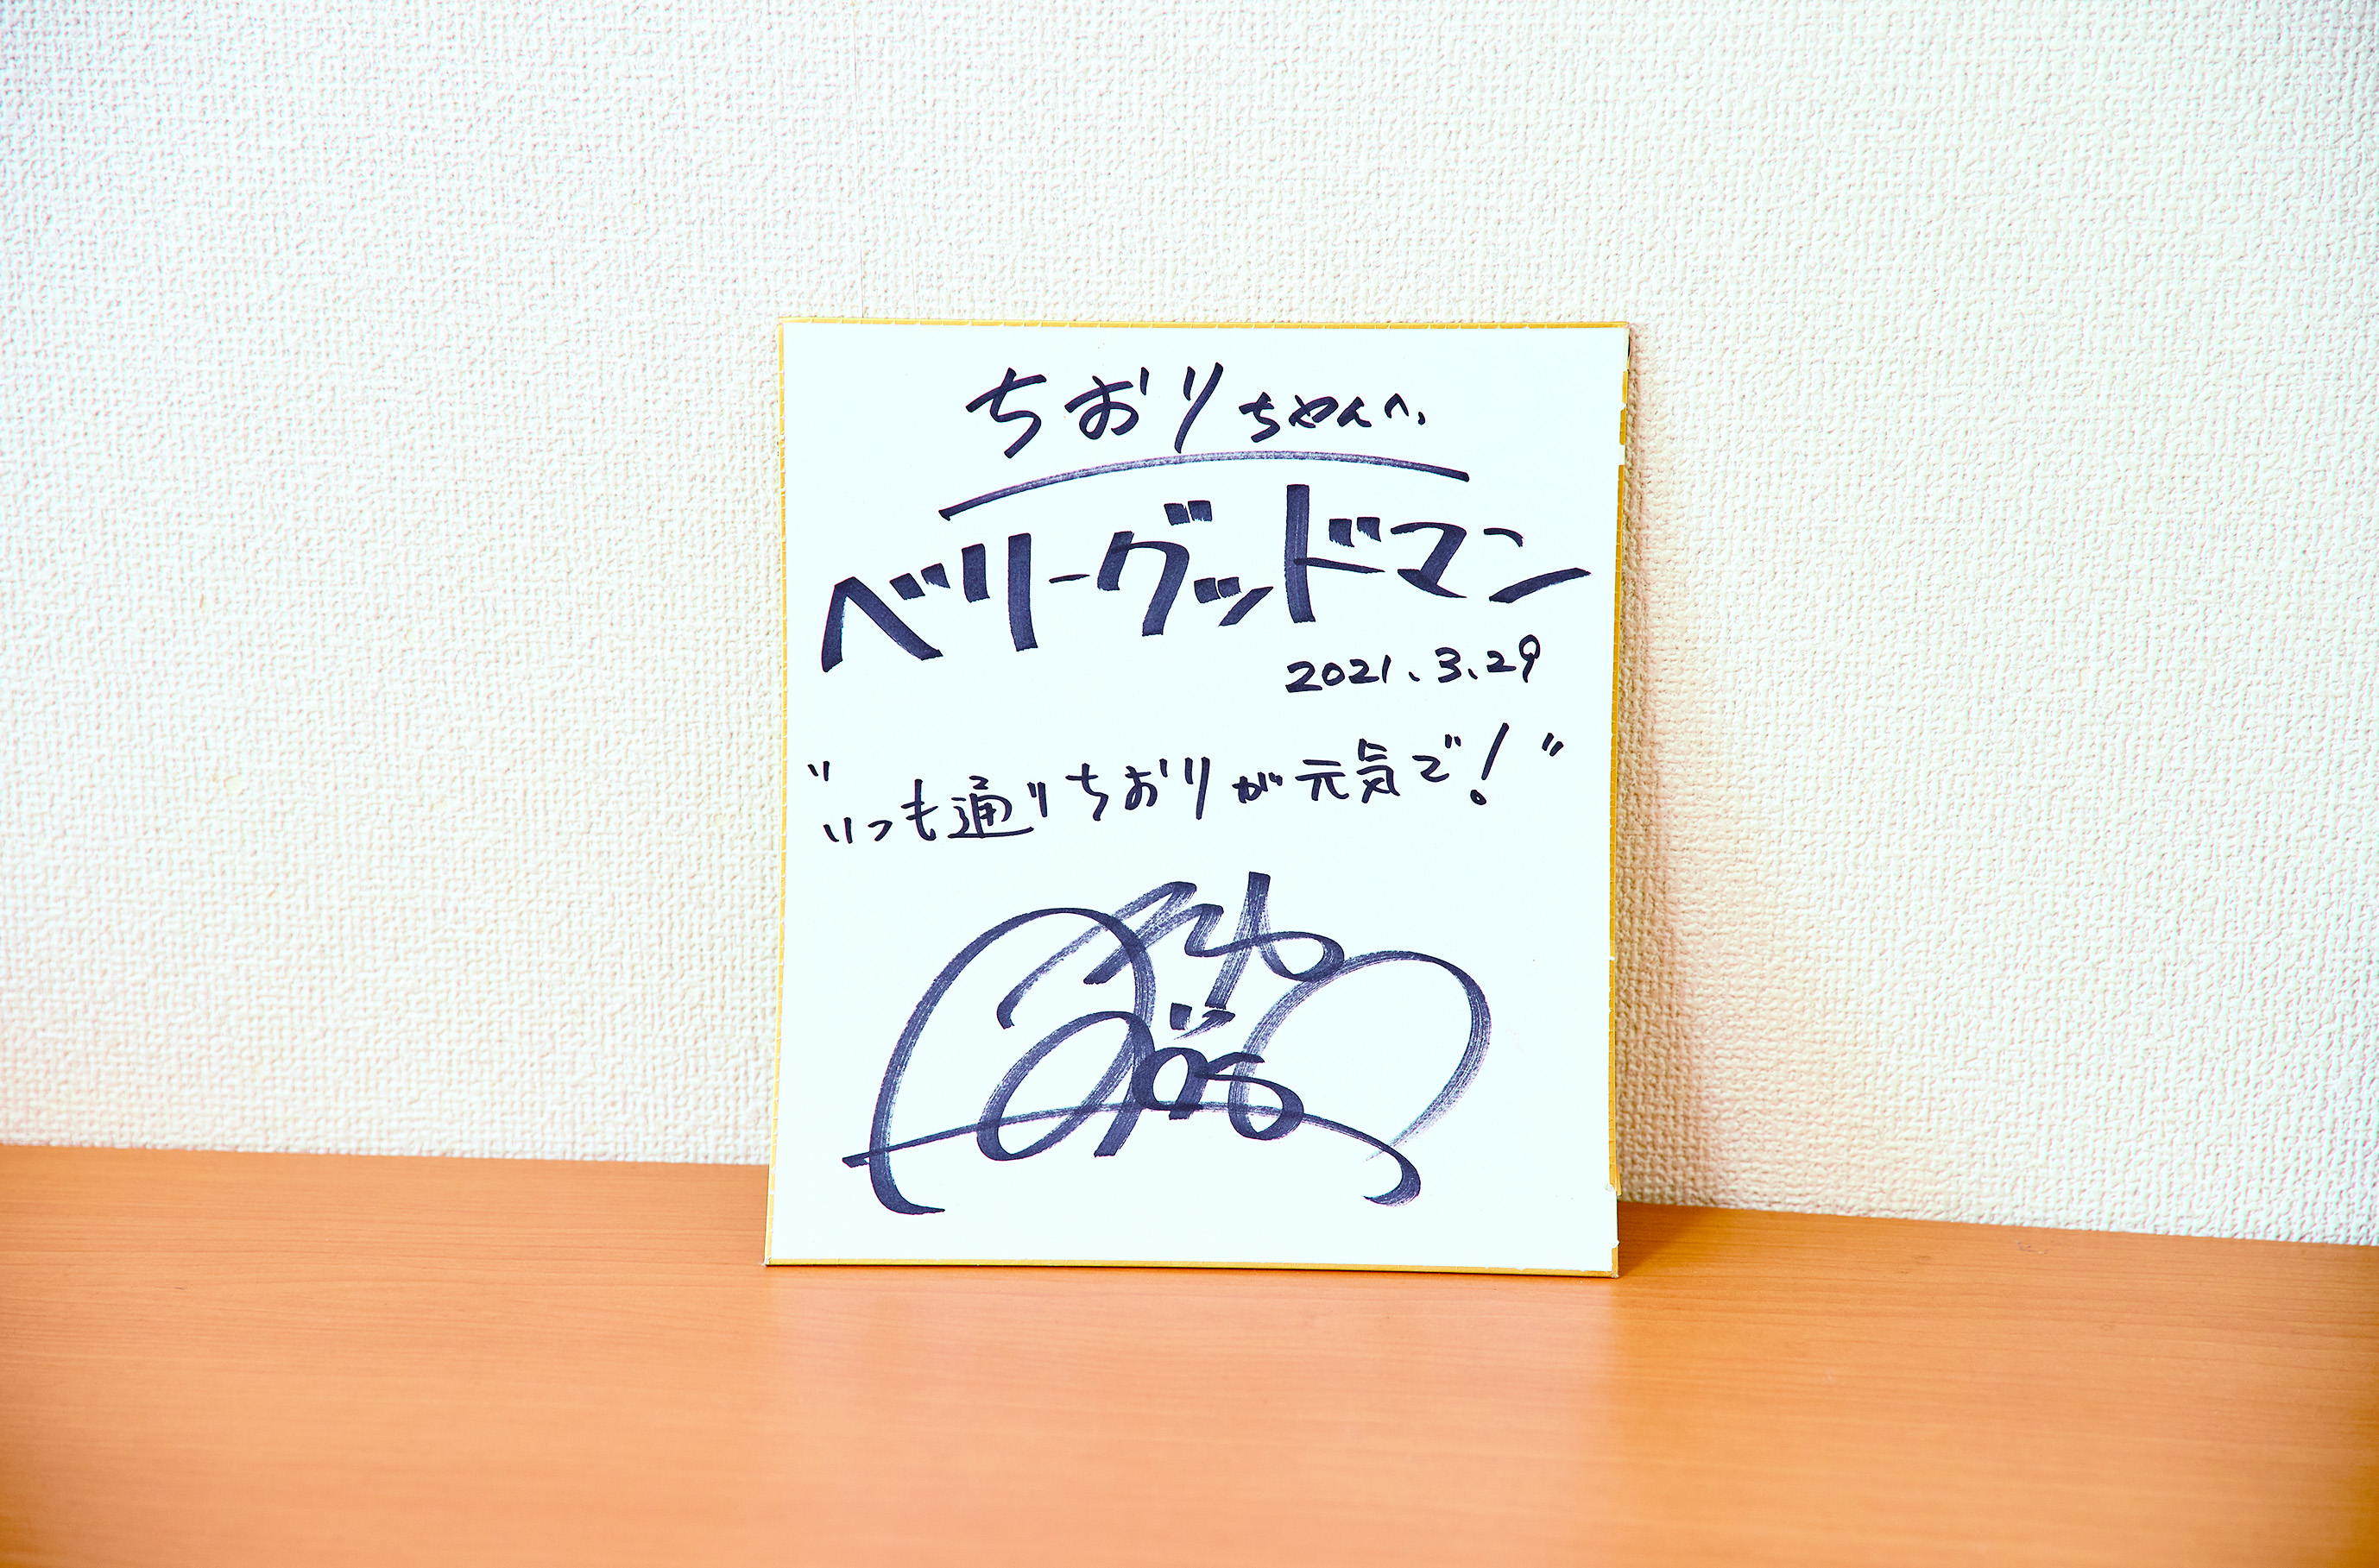 ちおりちゃんへ
ベリーグッドマン
2021.3.29
"いつも通りちおりが元気で!"